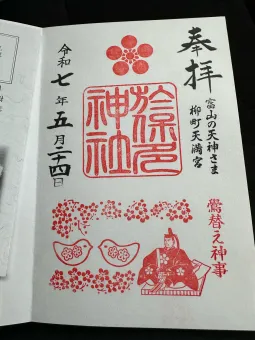 奉拝
富山の天神さま
柳町天満宮
鶯替え神事
於保多
神社
令和七年五月二十四日